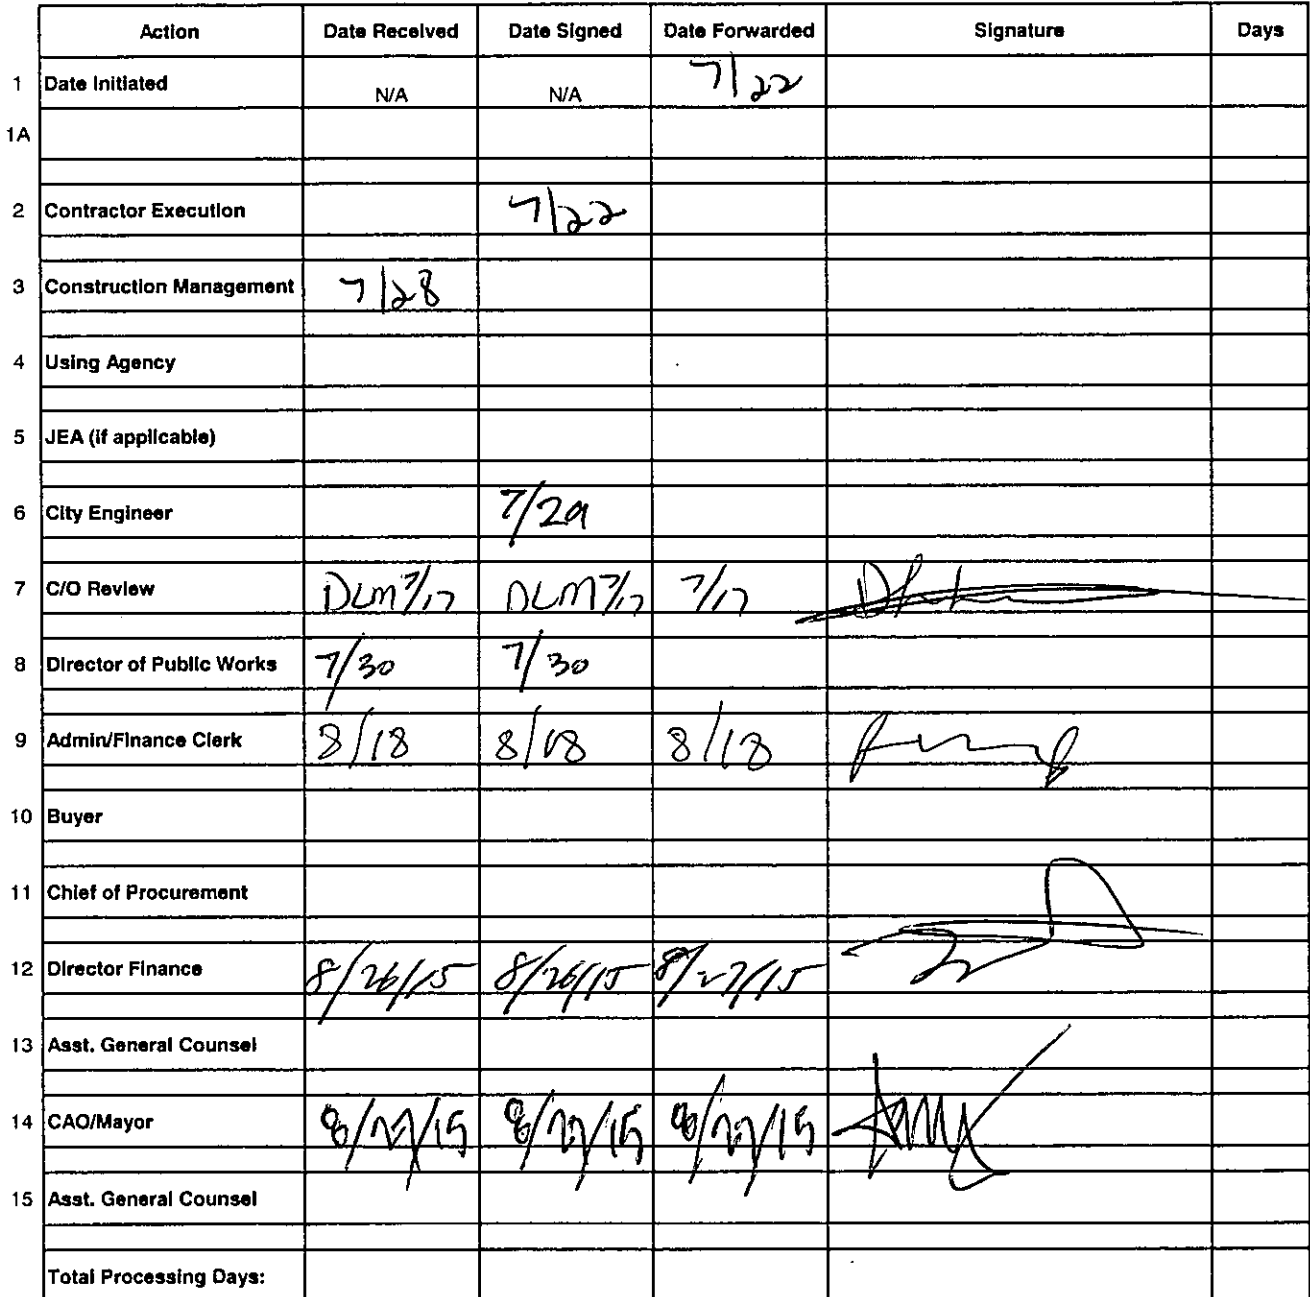 Action Date Received Date Signed Date Forwarded Signature Days
1 Date Initiated N/A N/A 7/22
1A
2 Contractor Execution 7/22
3 Construction Management 7/28
4 Using Agency
5 JEA (if applicable)
6 City Engineer 7/29
7 C/O Review DLM 7/17 DLM 7/17 7/17
8 Director of Public Works 7/30 7/30
9 Admin/Finance Clerk 8/18 8/18 8/18
10 Buyer
11 Chief of Procurement
12 Director Finance 8/26/15 8/26/15 8/27/15
13 Asst. General Counsel
14 CAO/Mayor 8/27/15 8/27/15 8/27/15
15 Asst. General Counsel
Total Processing Days: